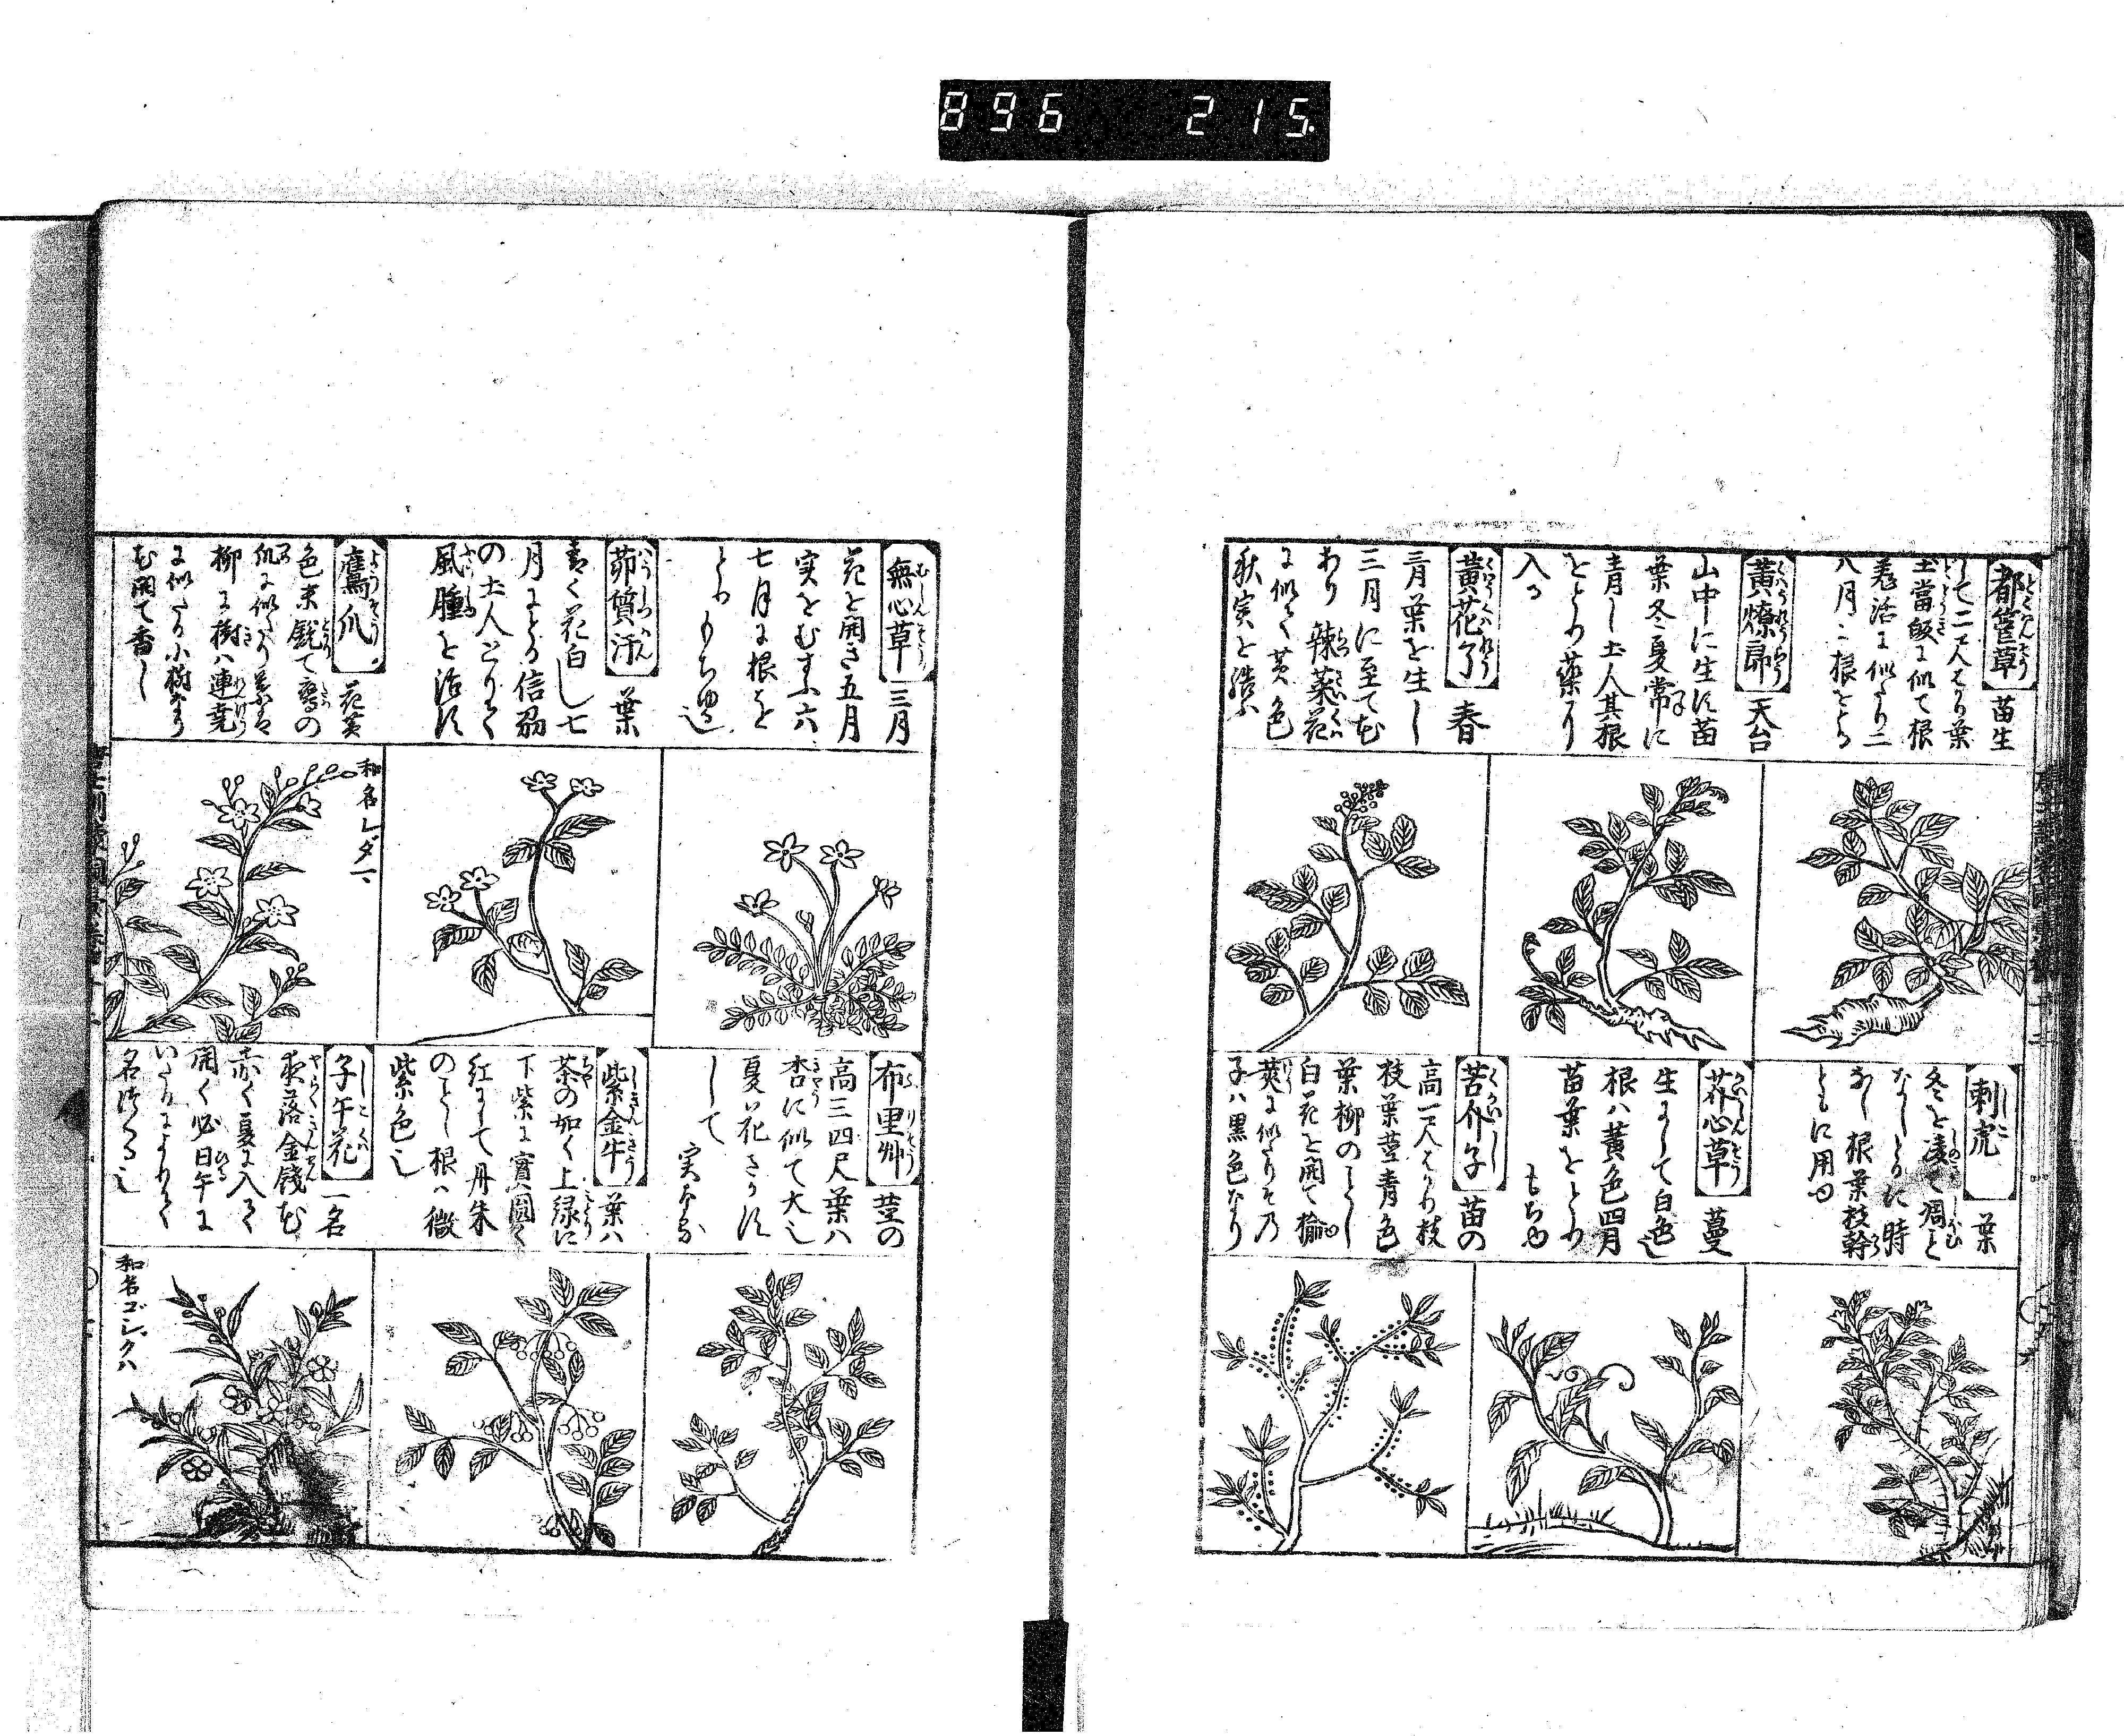 896 215
都管草 苗生
山中に生ず苗
黄燎郎 天台
葉冬夏常に
青し土人其根
をとりて薬に
入る
黄花了 春
三月葉を生し
三月に至て花
あり辣菜花
に似て黄色
秋実を結ふ
刺虎 葉
冬を凌て凋こと
なしとるに時
なし根葉枝幹
ともに用ゆ
芥心草 蔓
生にして白色也
根ハ黄色四月
苗葉をとりて
もちゆ
苦芥子 苗の
枝葉莖青色
葉柳のことし
白花を開て楡
莢に似たり其乃
子ハ黒色なり
無心草 三月
花を開き五月
実をむすふ六
七月に根を
とりもちゆ也
茆質汗 葉
青く花白し七
月にとる信州
の土人とりて
風腫を治す
鷹爪 花黄
色末鋭て鷹の
爪に似たり
柳に樹ハ連堯
に似たる小樹なり
花開て香し
和名レダマ
布里艸 莖の
高三四尺葉ハ
杏に似て大也
夏花さかず
して実ならす
紫金牛 葉ハ
茶の如く上緑に
下紫に實圓く
紅にして丹朱
のことし根ハ微
紫色也
子午花 一名
夜落金錢花
赤く夏に入て
開く必日午に
いたるによりて
名つくる也
和名ゴジクハ